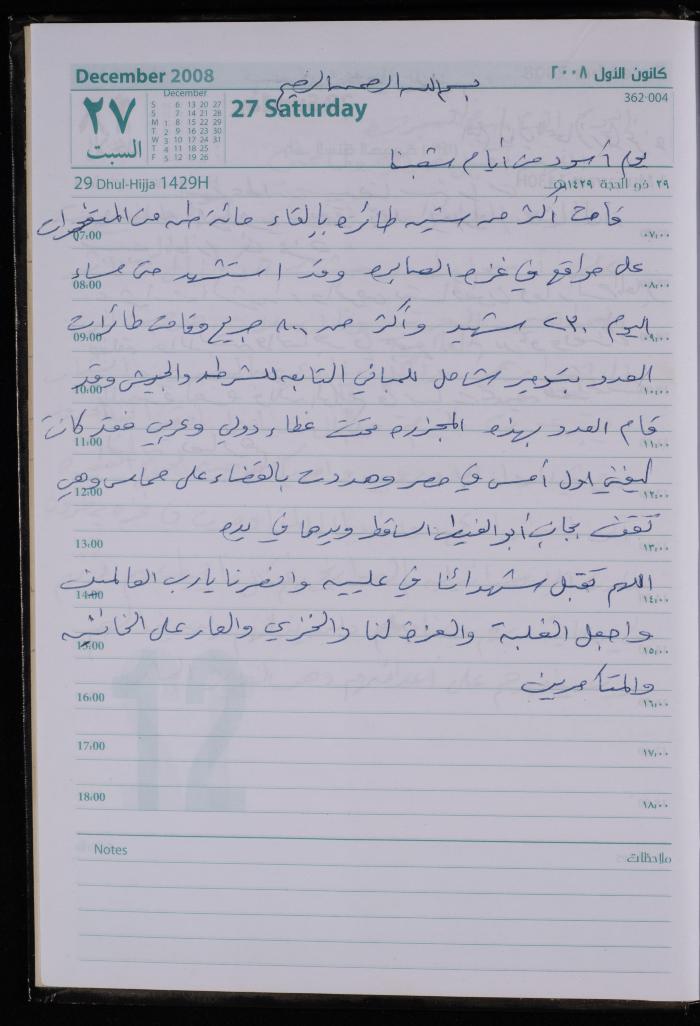 December 2008
بسم الله الرحمن الرحيم
كانون الأول ٢٠٠٨
٢٧
السبت
December
S 6 13 20 27
S 7 14 21 28
M 1 8 15 22 29
T 2 9 16 23 30
W 3 10 17 24 31
T 4 11 18 25
F 5 12 19 26
27 Saturday
362-004
يوم أسود من أيام شعبنا
29 Dhul-Hijja 1429H
٢٩ ذو الحجة ١٤٢٩هـ
قامت أكثر من ستين طائره بإلقاء مائة طن من المتفجرات
07:00 ٠٧:٠٠
على مواقع في غزه الصابره وقد استشهد حتى مساء
08:00 ٠٨:٠٠
اليوم ٢٣٠ شهيد وأكثر من ٨٠٠ جريح وقامت طائرات
09:00 ٠٩:٠٠
العدو بتدمير شامل للمباني التابعه للشرطه والجيش وقد
10:00 ١٠:٠٠
قام العدو بهذه المجزره تحت غطاء دولي وعربي فقد كانت
11:00 ١١:٠٠
ليفني اول أمس في مصر وهددت بالقضاء على حماس وهي
12:00 ١٢:٠٠
تقف بجانب أبو الغيط الساقط ويدها في يده
13:00 ١٣:٠٠
اللهم تقبل شهدائنا في عليين وانصرنا يارب العالمين
14:00 ١٤:٠٠
واجعل الغلبة والعزة لنا والخزي والعار على الخائنين
15:00 ١٥:٠٠
والمتآمرين
16:00 ١٦:٠٠
17:00 ١٧:٠٠
18:00 ١٨:٠٠
12
Notes ملاحظات